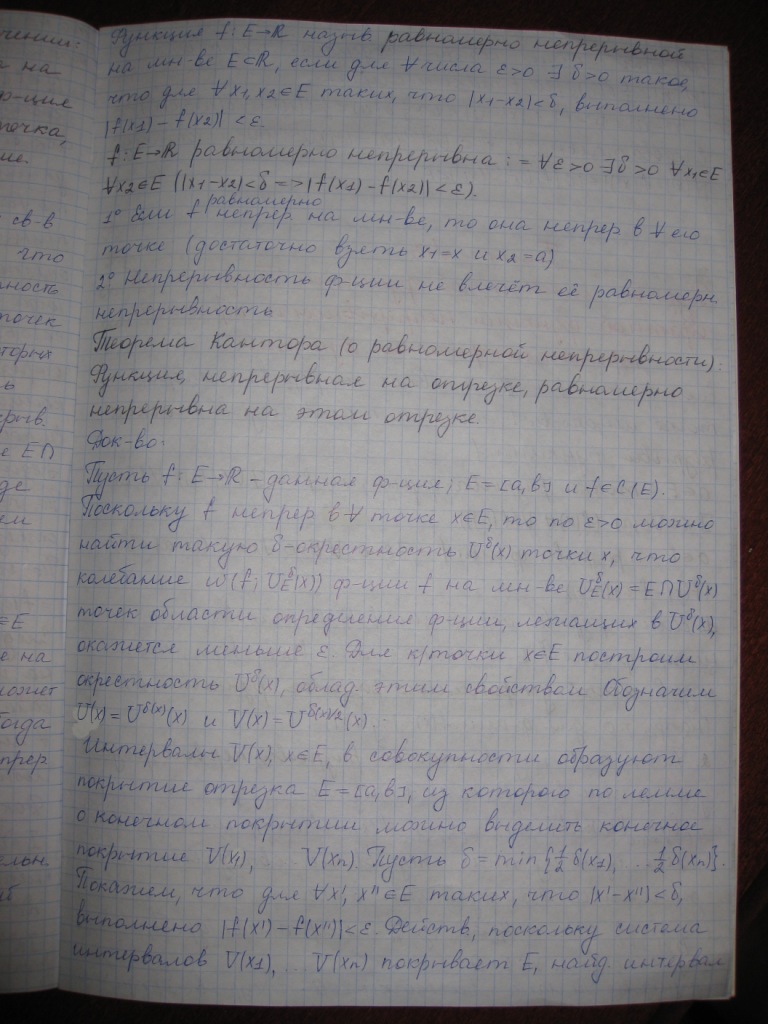 чении:
а на
ф-ция
точка,
ие.
св-в
что
ность
точек
торых
ь
крыв.
е ЕП
де
ем
∈E
е на
может
Тогда
прер
ельн.
Функция f: E→R назыв равномерно непрерывной
на мн-ве E⊂R, если для ∀ числа ε>0 ∃ δ>0 такое,
что для ∀ x1,x2∈E таких, что |x1-x2|<δ, выполнено
|f(x1) - f(x2)| <ε.
f: E→R равномерно непрерывна := ∀ε>0 ∃δ>0 ∀x1∈E
∀x2∈E (|x1-x2|<δ => |f(x1) - f(x2)|<ε).
равномерно
1° Если f непрер на мн-ве, то она непрер в ∀ его
точке (достаточно взять x1=x и x2=a)
2° Непрерывность ф-ции не влечёт её равномерн.
непрерывность
Теорема Кантора (о равномерной непрерывности).
Функция, непрерывная на отрезке, равномерно
непрерывна на этом отрезке.
Док-во:
Пусть f: E→R - данная ф-ция; E=[a,b] и f∈C(E).
Поскольку f непрер в ∀ точке x∈E, то по ε>0 можно
найти такую δ-окрестность U^δ(x) точки x, что
колебание ω(f; U_E^δ(x)) ф-ции f на мн-ве U_E^δ(x)=E∩U^δ(x)
точек области определения ф-ции, лежащих в U^δ(x),
окажется меньше ε. Для к/точки x∈E построим
окрестность U^δ(x), облад. этим свойством Обозначим
U(x)=U^δ(x)(x) и V(x)=U^δ(x)1/2(x).
Интервалы V(x), x∈E, в совокупности образуют
покрытие отрезка E=[a,b], из которого по лемме
о конечном покрытии можно выделить конечное
покрытие V(x1), ... V(xn). Пусть δ=min{1/2 δ(x1), ... 1/2 δ(xn)}.
Покажем, что для ∀x', x''∈E таких, что |x'-x''|<δ,
выполнено |f(x') - f(x'')|<ε. Действ, поскольку система
интервалов V(x1), ... V(xn) покрывает E, найд. интервал